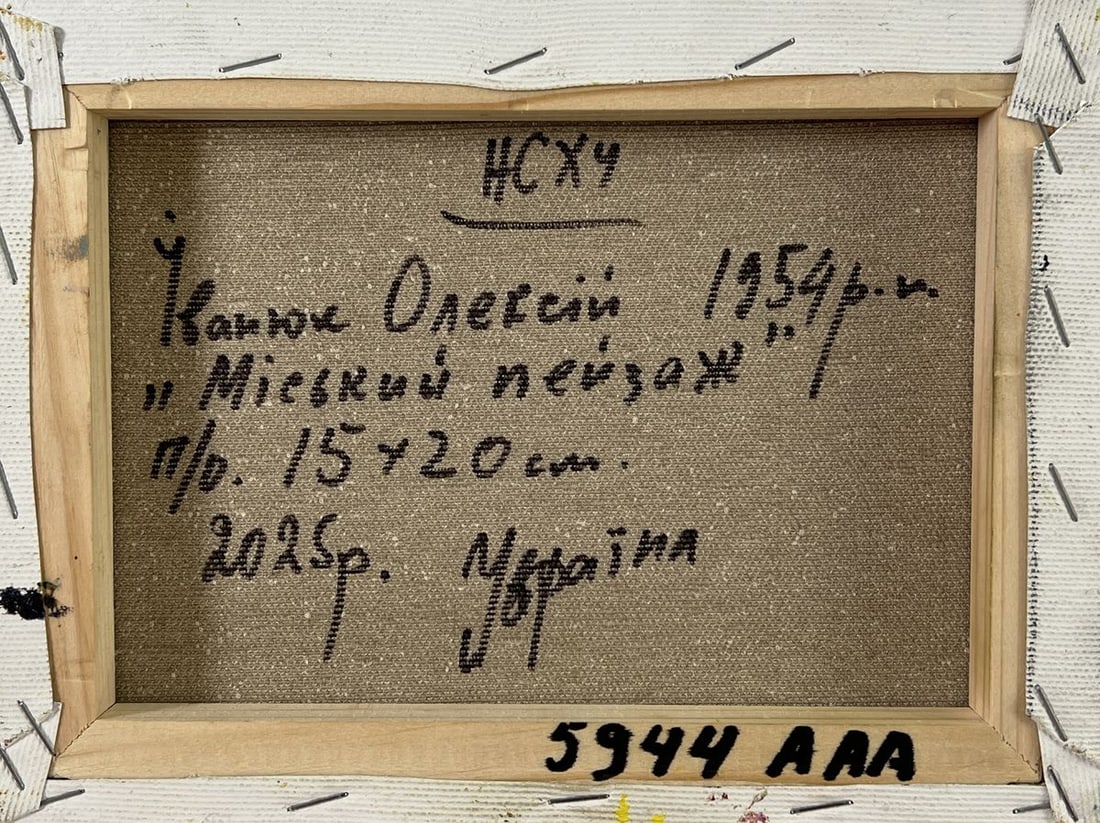 НСХУ
Іванюк Олексій 1954р.н.
„Міський пейзаж"
п/о. 15×20 см.
2025р. Україна
5944 AAA